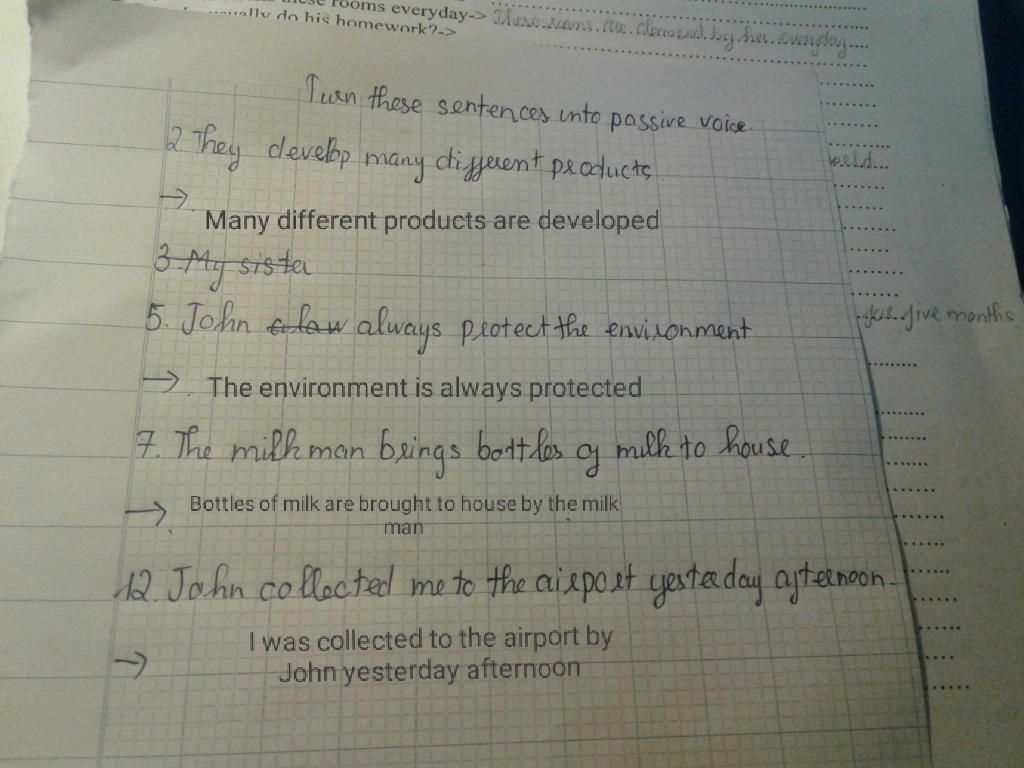 these rooms everyday-> These rooms are cleaned by her everyday
usually do his homework?->
Turn these sentences into passive voice.
2 They develop many different products
→
Many different products are developed
3. My sister
5. John always protect the environment
for five months
→ The environment is always protected
7. The milk man brings bottles of milk to house.
→ Bottles of milk are brought to house by the milk
man
12. John collected me to the airport yesterday afternoon.
I was collected to the airport by
→ John yesterday afternoon